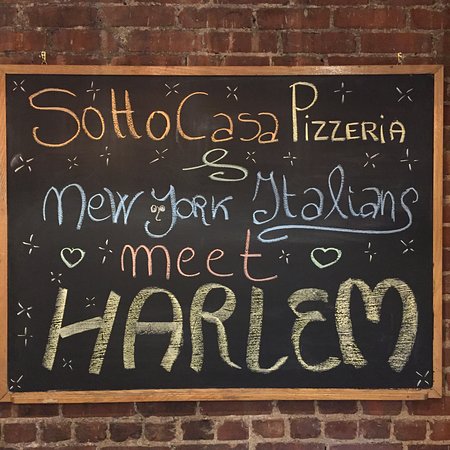 SottoCasa PIZZERIA
&
New York Italians
meet
HARLEM